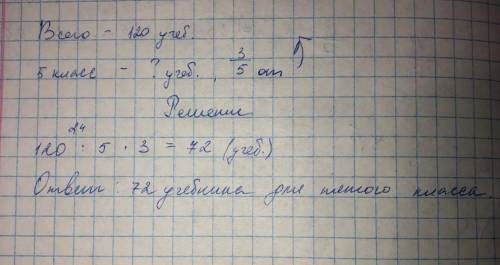 Всего - 120 учеб.
5 класс - ? учеб., 3/5 от
Решение
24
120 : 5 · 3 = 72 (учеб.)
Ответ: 72 учебника для пятого класса